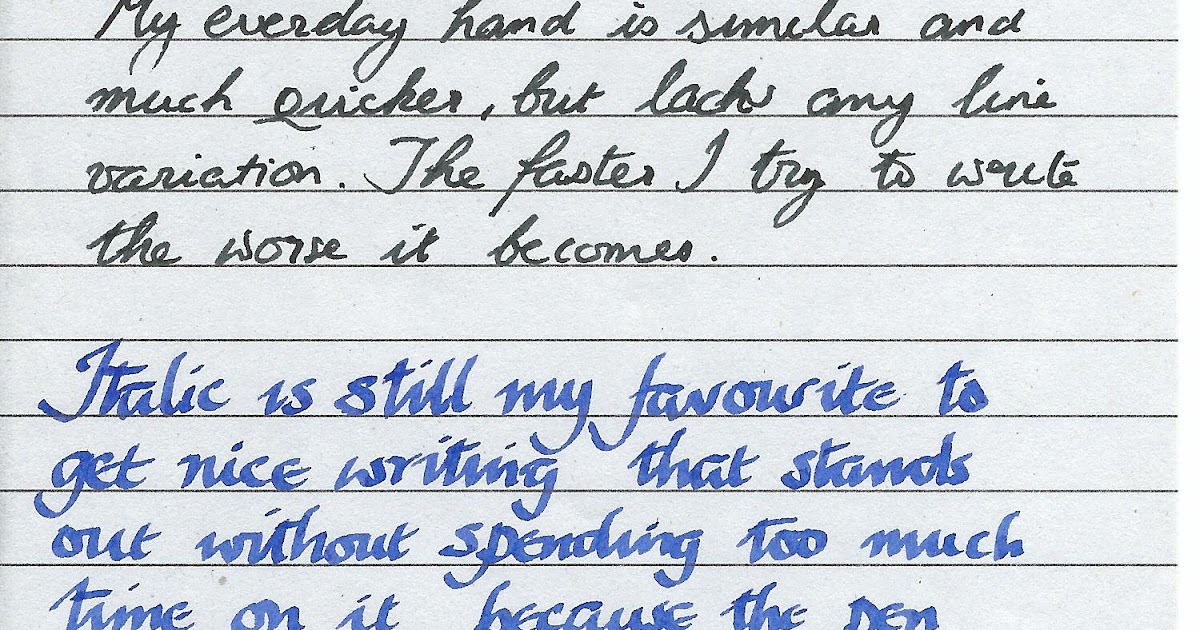 My everday hand is similar and
much quicker, but lacks any line
variation. The faster I try to write
the worse it becomes.
Italic is still my favourite to
get nice writing that stands
out without spending too much
time on it because the pen